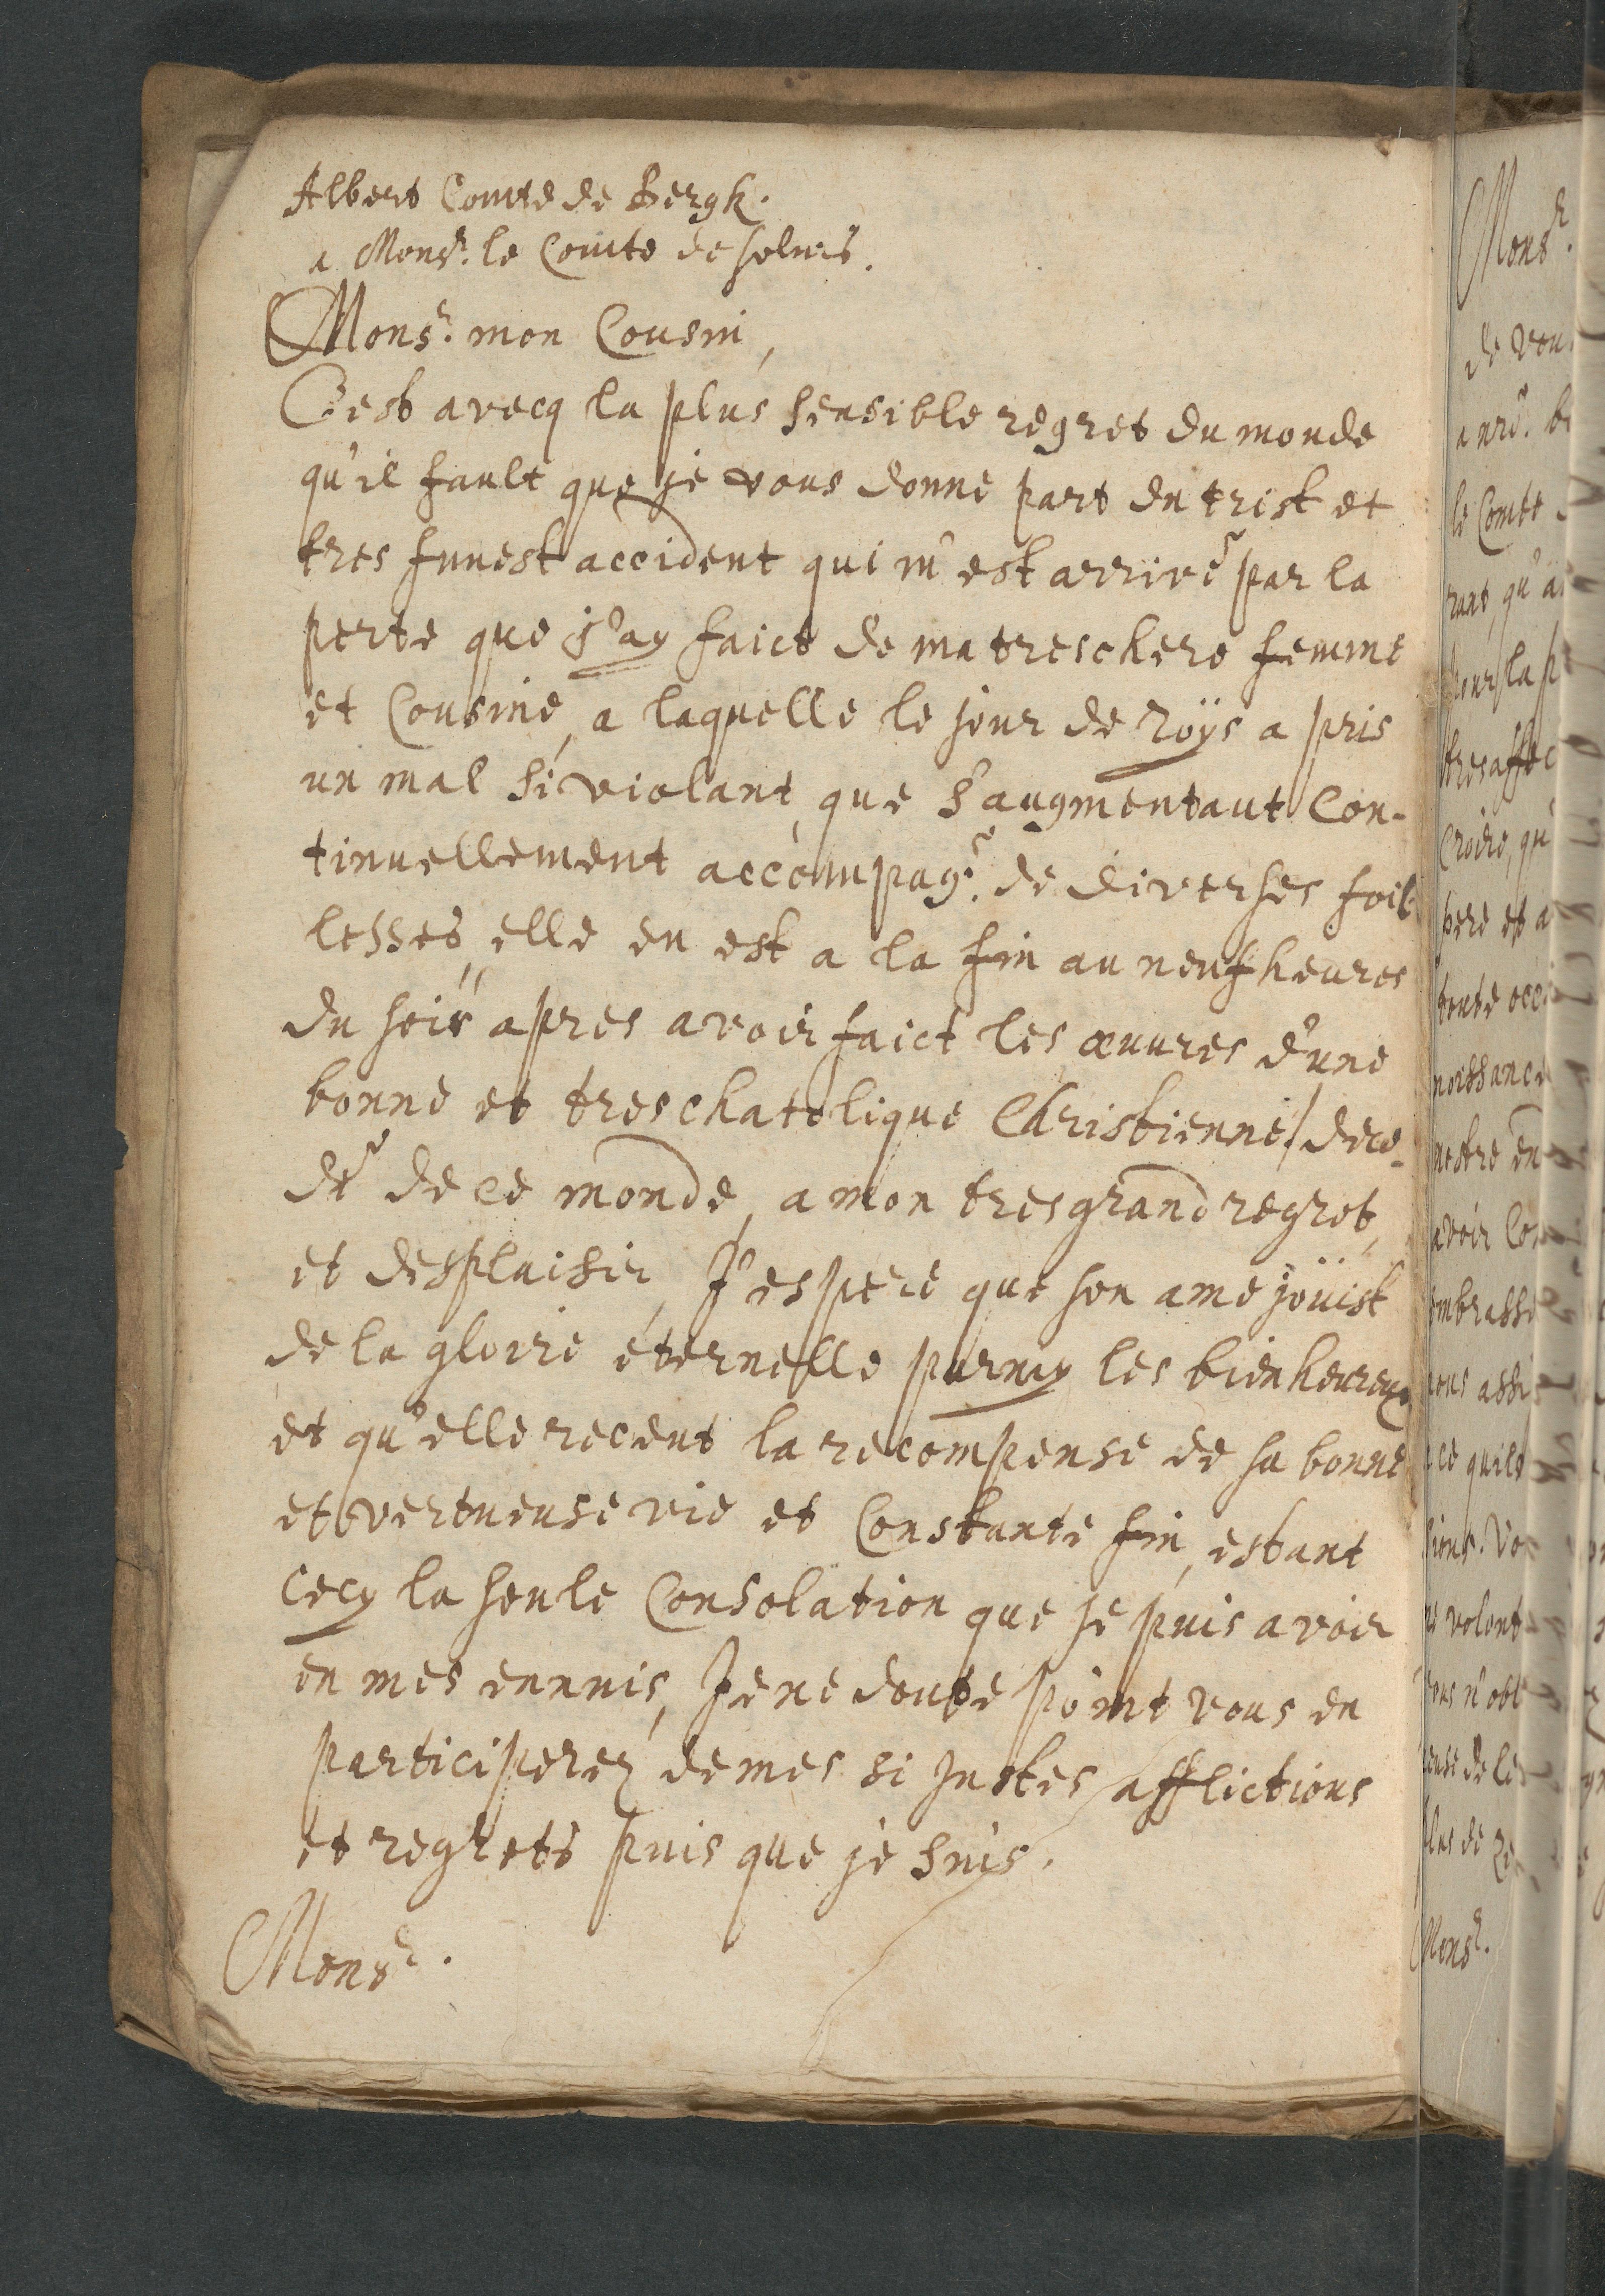 Albert Comte de Bergk.
a Monsr. le Comte de solms.
Monsr. mon Cousin,
C'est avecq la plus sensible regret du monde
qu'il fault que je vous donne part du trist et
tres funest accident qui m'est arrivé par la
perte que j'ay faict de ma treschere femme
et Cousine, a laquelle le jour de röys a pris
un mal si violant, que s'augmentant Con-
tinuellement accompag.é de diverses foib
lesses, elle en est a la fin au neuf heures
du soir apres avoir faict les œuures d'une
bonne et treschatolique Christienne/dece-
dé de ce monde, a mon tresgrand regret,
et desplaisir, J'espere que son ame jöuist
de la gloire éternelle parmy les bienheureux
et qu'elle recent la recompense de sa bonne
et vertueuse vie et Constante fin, estant
cecy la seule Consolation que je puis avoir
en mes ennuis, Je ne doute point vous en
participerez de mes si Justes afflictions
et regrets puis que je suis.
Monsr.
Monsr.
de vou
a nre. b
le Comte
rant, qu'a
pour la p
tresaffec
Croire, qu'
pere et a
toute occ
noissance
nostre en
avoir Con
embrasse
nous assi
ce quils
sions. Vo
re volont
vous n'obl
plus de
Monsr.